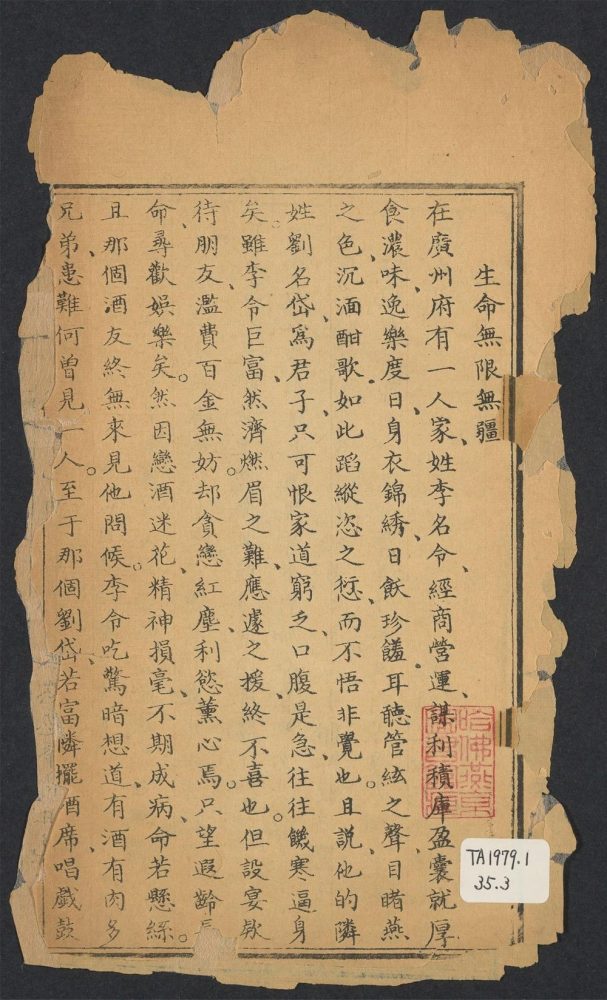 生命無限無疆
在廣州府有一人家、姓李名令、經商營運、謀利積庫盈囊、就厚
食濃味、逸樂度日、身衣錦綉、日飫珍饈、耳聽管絃之聲、目睹燕
之色、沉湎酣歌。如此蹈縱恣之愆、而不悟非覺也。且説他的隣
姓劉名岱、爲君子、只可恨家道窮乏、口腹是急、往往饑寒逼身
矣。雖李令巨富、然濟燃眉之難、應遽之援、終不喜也。但設宴欵
待朋友、濫費百金無妨。却貪戀紅塵、利慾薰心焉。只望遐齡
命、尋歡娛樂矣。然因戀酒迷花、精神損毫、不期成病、命若懸絲。
且那個酒友終無來見他問候。李令吃驚暗想道、有酒有肉多
兄弟、患難何曾見一人。至于那個劉岱、若富隣擺酒席唱戲鼓
哈佛燕京
TA1979.1
35.3